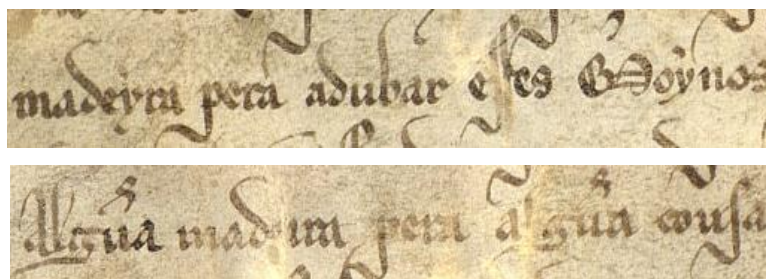 madeyra pera adubar esses Moynos
Algũa madeira pera algũa cousa